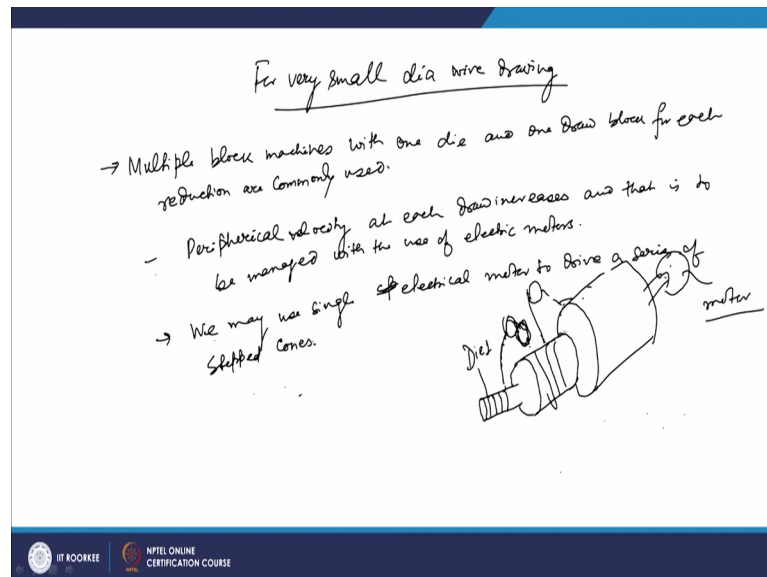 For very small dia wire drawing
→ Multiple block machines with one die and one draw block for each
reduction are commonly used.
- Peripherical velocity at each draw increases and that is to
be managed with the use of electric motors.
→ We may use single electrical motor to drive a series of
stepped cones.
Dies
motor
IIT ROORKEE
NPTEL ONLINE
CERTIFICATION COURSE